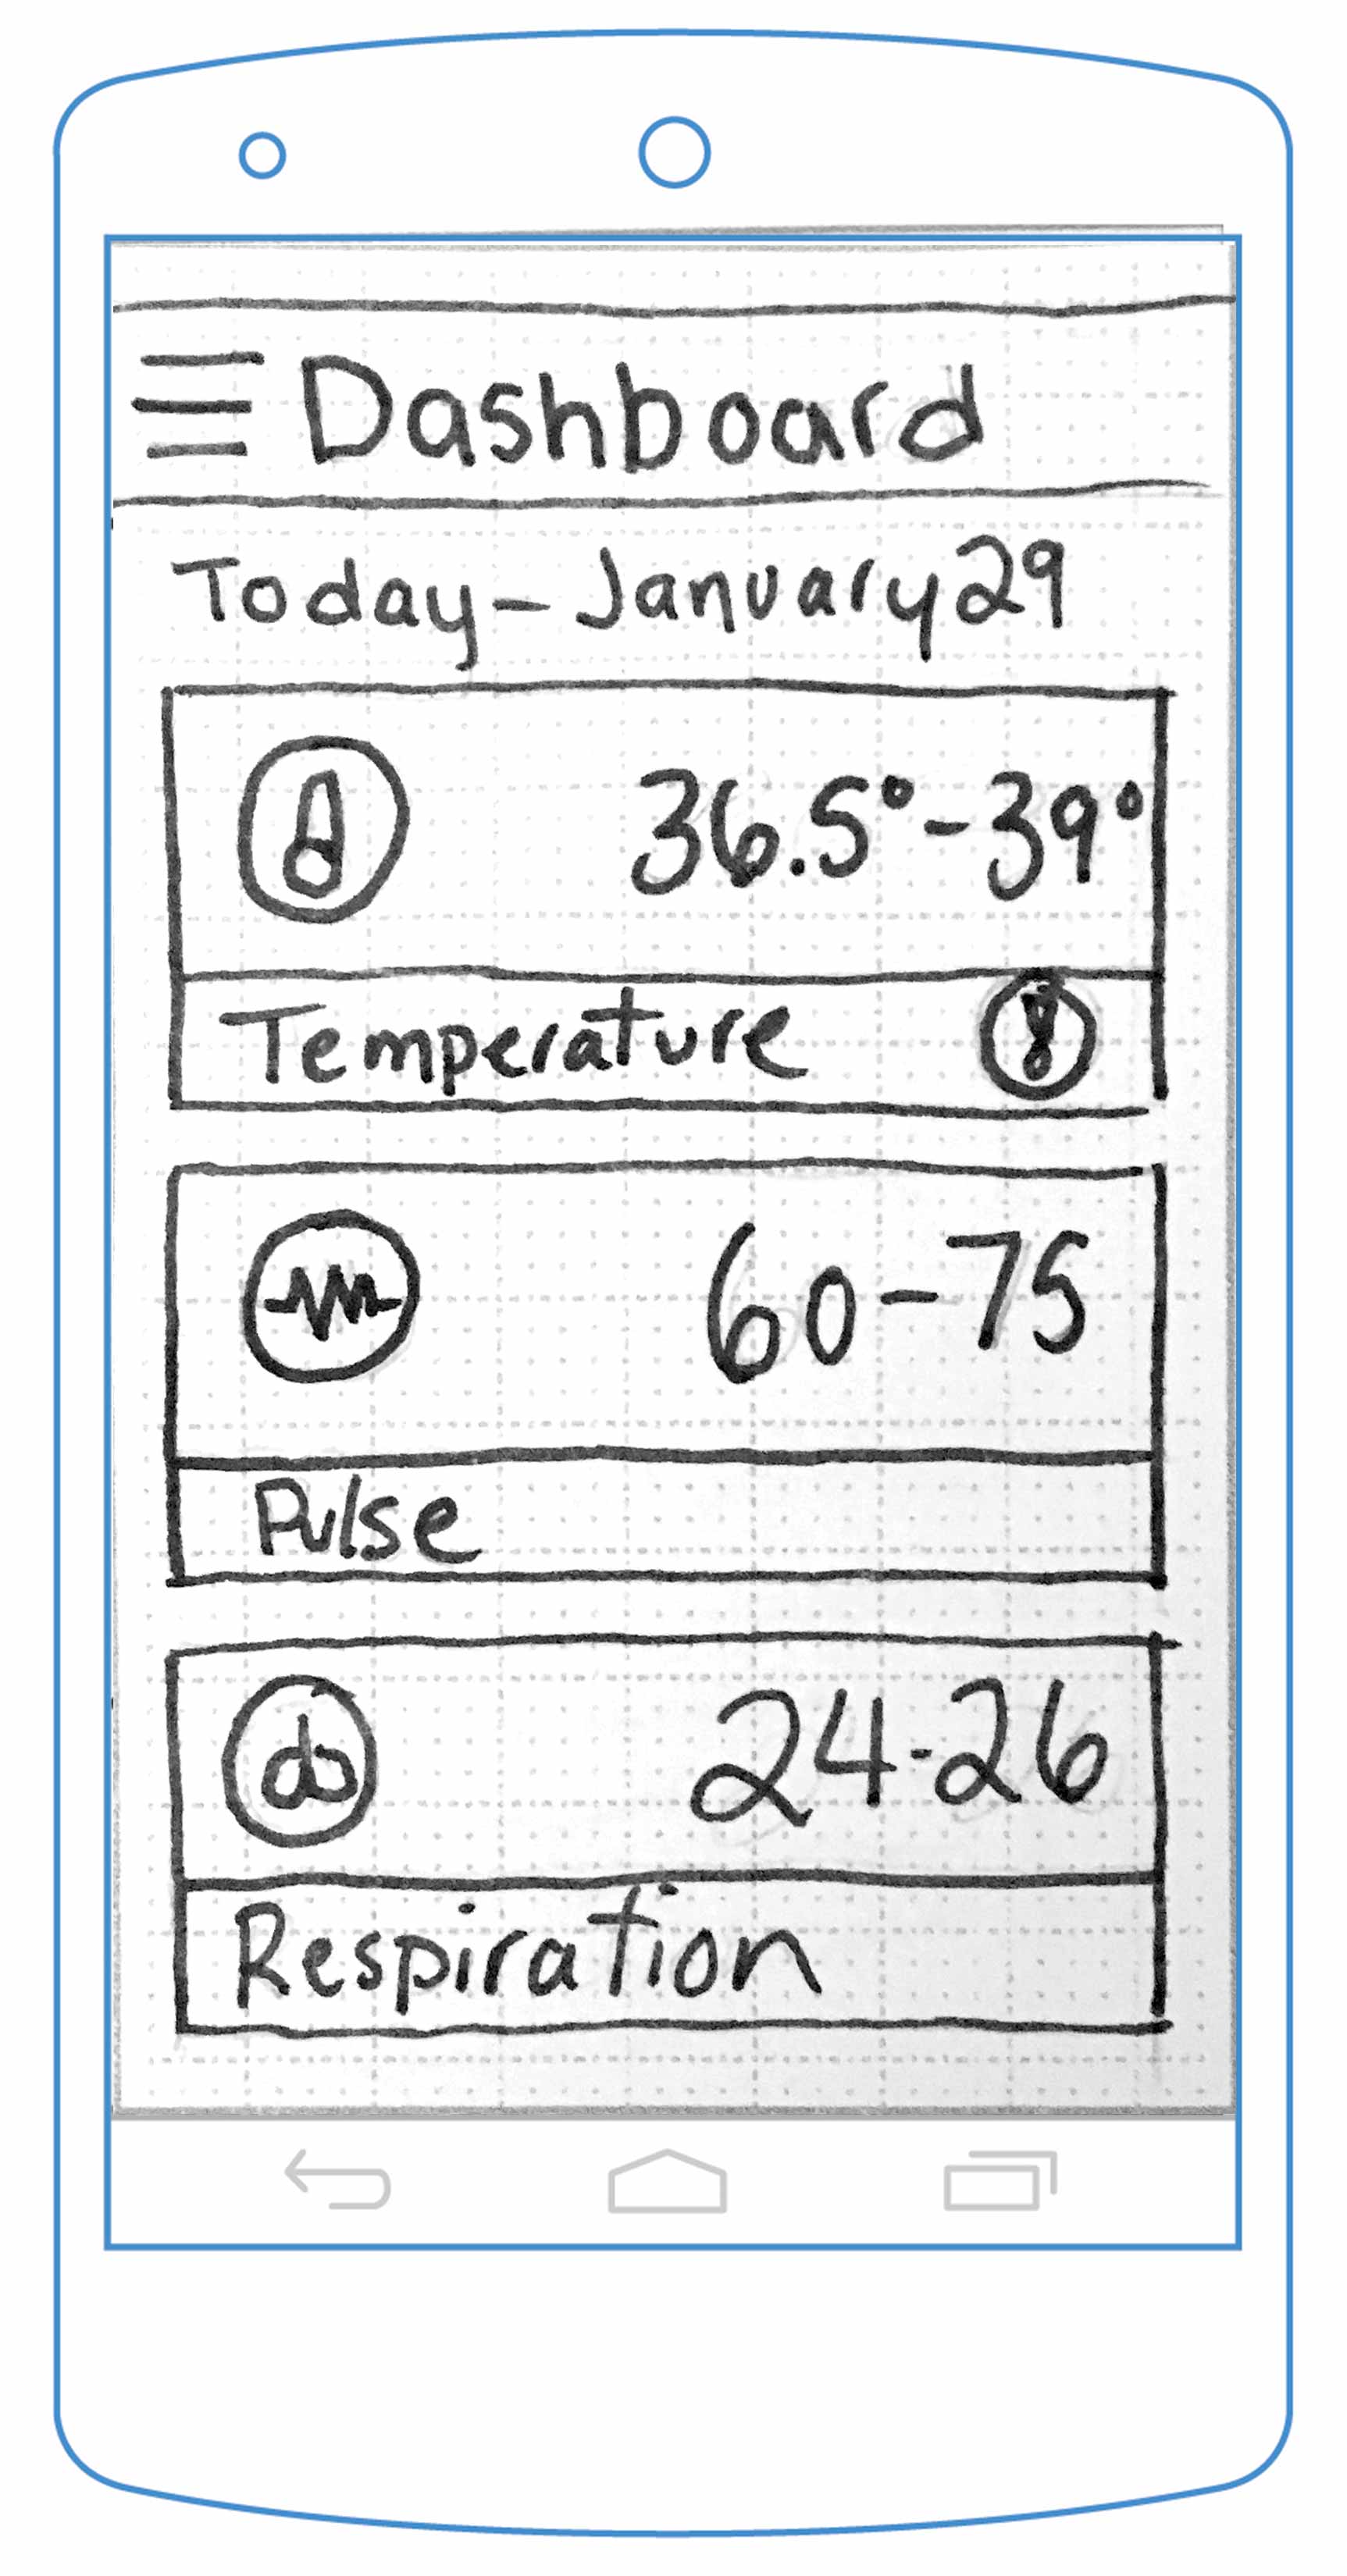 Dashboard
Today - January 29
36.5° - 39°
Temperature
60 - 75
Pulse
24 - 26
Respiration